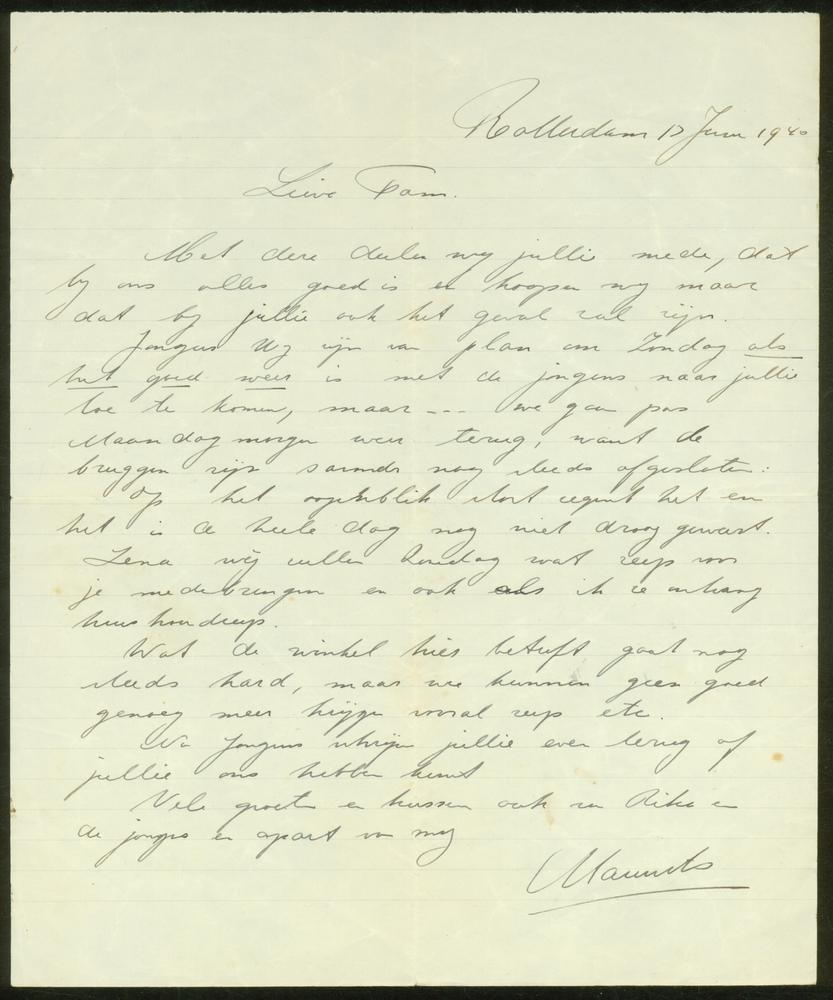 Rotterdam 17 Juni 1940
Lieve Fam.
Met deze deelen wy jullie mede, dat
by ons alles goed is en hoopen wy maar
dat by jullie ook het geval zal zijn.
Jongens Wy zijn van plan om Zondag als
het goed weer is met de jongens naar jullie
toe te komen, maar --- we gaan pas
Maandagmorgen weer terug, want de
bruggen zijn savonds nog steeds afgesloten.
Op het oogenblik stort regent het en
het is de heele dag nog niet droog geweest.
Lena wij zullen Zondag wat zeep voor
je medebrengen en ook als ik ze ontvang
huishoudzeep.
Wat de winkel hier betreft gaat nog
steeds hard, maar we kunnen geen goed
genoeg meer krijgen vooral zeep etc.
Nu Jongens schrijven jullie even terug of
jullie ons hebben kunt
Vele groeten en kussen ook van Rika en
de jongens en apart van my
Maurits